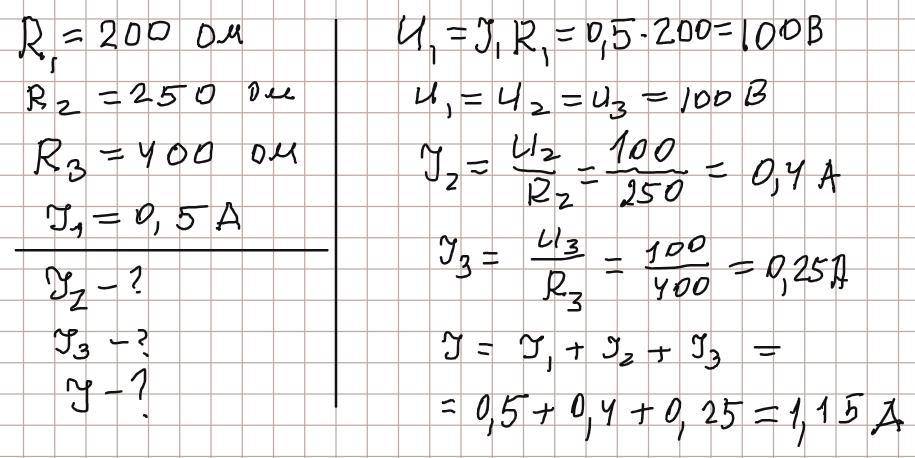 R₁ = 200 ом
R₂ = 250 ом
R₃ = 400 ом
I₁ = 0,5 А
I₂ - ?
I₃ - ?
I - ?
U₁ = I₁ R₁ = 0,5 · 200 = 100 В
U₁ = U₂ = U₃ = 100 В
I₂ = U₂/R₂ = 100/250 = 0,4 А
I₃ = U₃/R₃ = 100/400 = 0,25 А
I = I₁ + I₂ + I₃ =
= 0,5 + 0,4 + 0,25 = 1,15 А